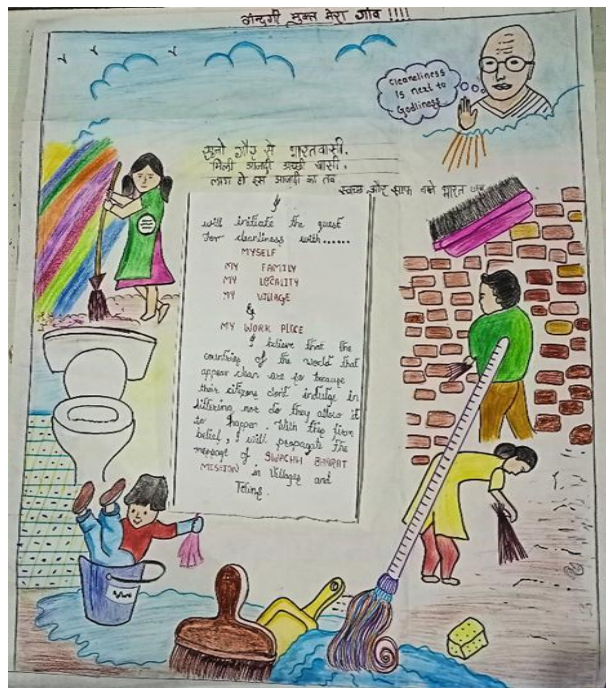 गन्दगी मुक्त मेरा गाँव !!!!
Cleaneliness
is next to
Godliness.
सुनो गौर से भारतवासी,
मिली आजादी अच्छी खासी,
लाभ हो इस आजादी का तब
स्वच्छ और साफ बने भारत जब
I
will initiate the quest
for cleanliness with......
MYSELF
MY FAMILY
MY LOCALITY
MY VILLAGE
&
MY WORK PLACE
I believe that the
countries of the world that
appear clean are so because
their citizens don't indulge in
littering nor do they allow it
to happen. With this firm
belief, I will propagate the
message of SWACHH BHARAT
MISSION in Villages and
Towns.